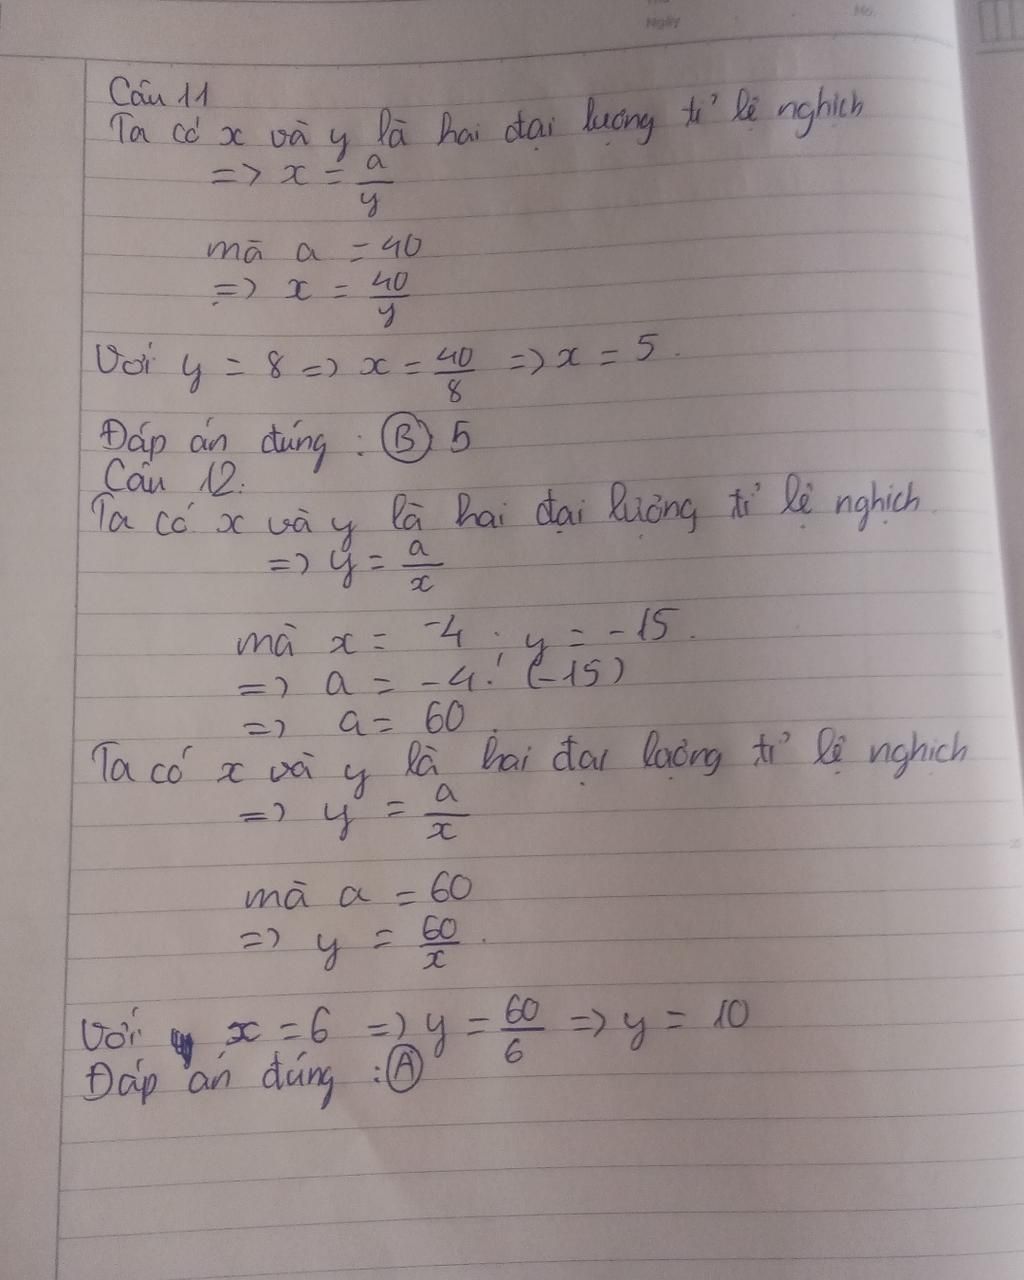 Ngày
No.
Câu 11
Ta có x và y là hai đại lượng tỉ lệ nghịch
=> x = a/y
mà a = 40
=> x = 40/y
Với y = 8 => x = 40/8 => x = 5.
Đáp án đúng : Ⓑ 5
Câu 12.
Ta có x và y là hai đại lượng tỉ lệ nghịch.
=> y = a/x
mà x = -4 ; y = -15.
=> a = -4. (-15)
=> a = 60.
Ta có x và y là hai đại lượng tỉ lệ nghịch
=> y = a/x
mà a = 60
=> y = 60/x.
Với x = 6 => y = 60/6 => y = 10
Đáp án đúng : Ⓐ